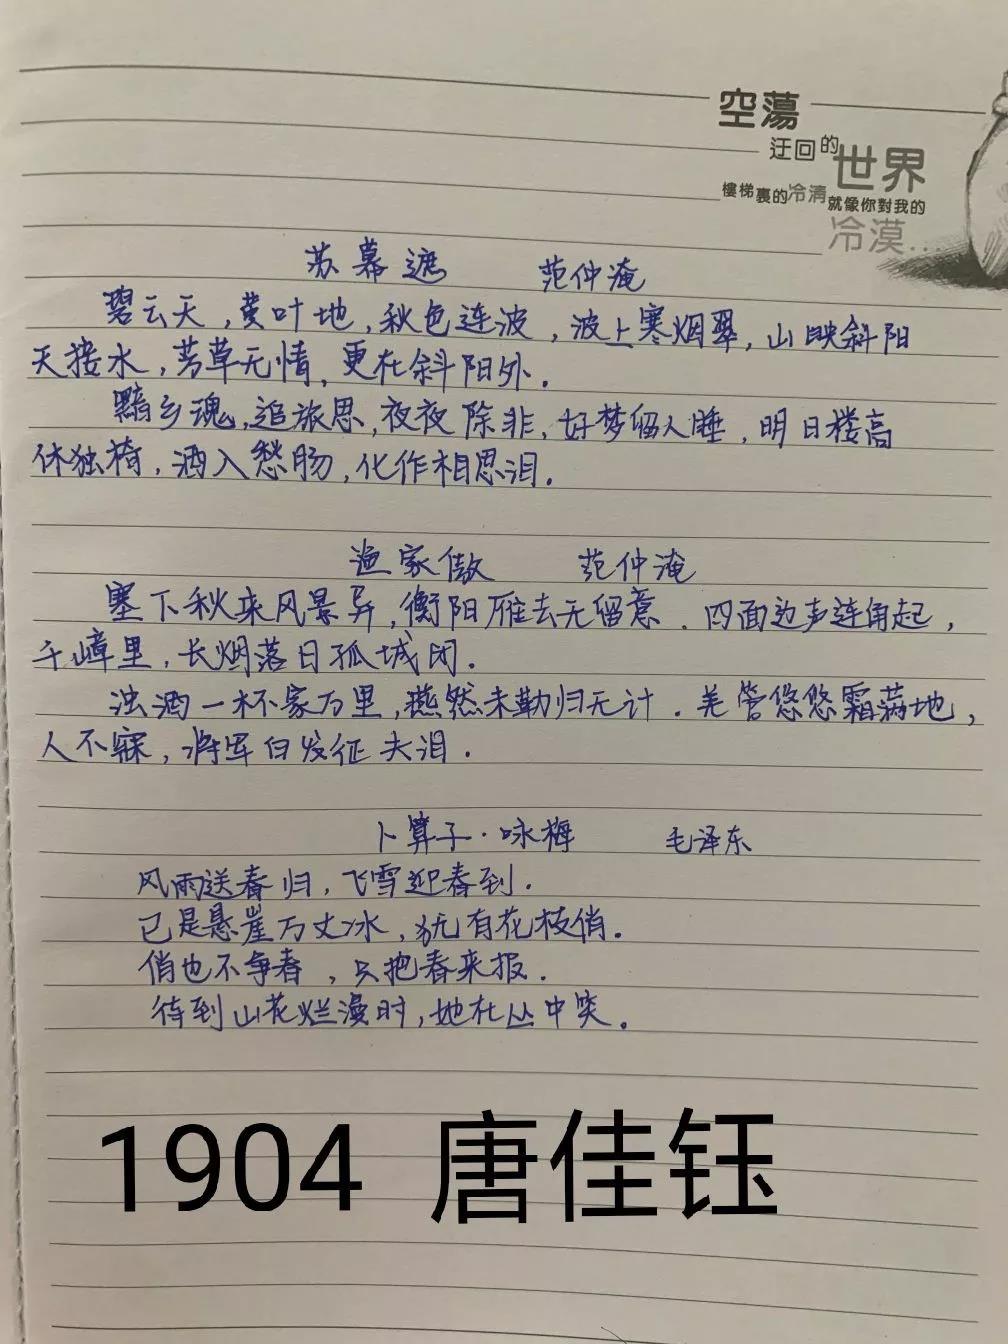 空蕩
迂回的世界
樓梯裏的冷清就像你對我的
冷漠...
苏幕遮 范仲淹
碧云天,黄叶地,秋色连波,波上寒烟翠,山映斜阳
天接水,芳草无情,更在斜阳外.
黯乡魂,追旅思,夜夜除非,好梦留人睡,明日楼高
休独椅,酒入愁肠,化作相思泪.
渔家傲 范仲淹
塞下秋来风景异,衡阳雁去无留意.四面边声连角起,
千嶂里,长烟落日孤城闭.
浊酒一杯家万里,燕然未勒归无计.羌管悠悠霜满地,
人不寐,将军白发征夫泪.
卜算子·咏梅 毛泽东
风雨送春归,飞雪迎春到.
已是悬崖万丈冰,犹有花枝俏.
俏也不争春,只把春来报.
待到山花烂漫时,她在丛中笑.
1904 唐佳钰